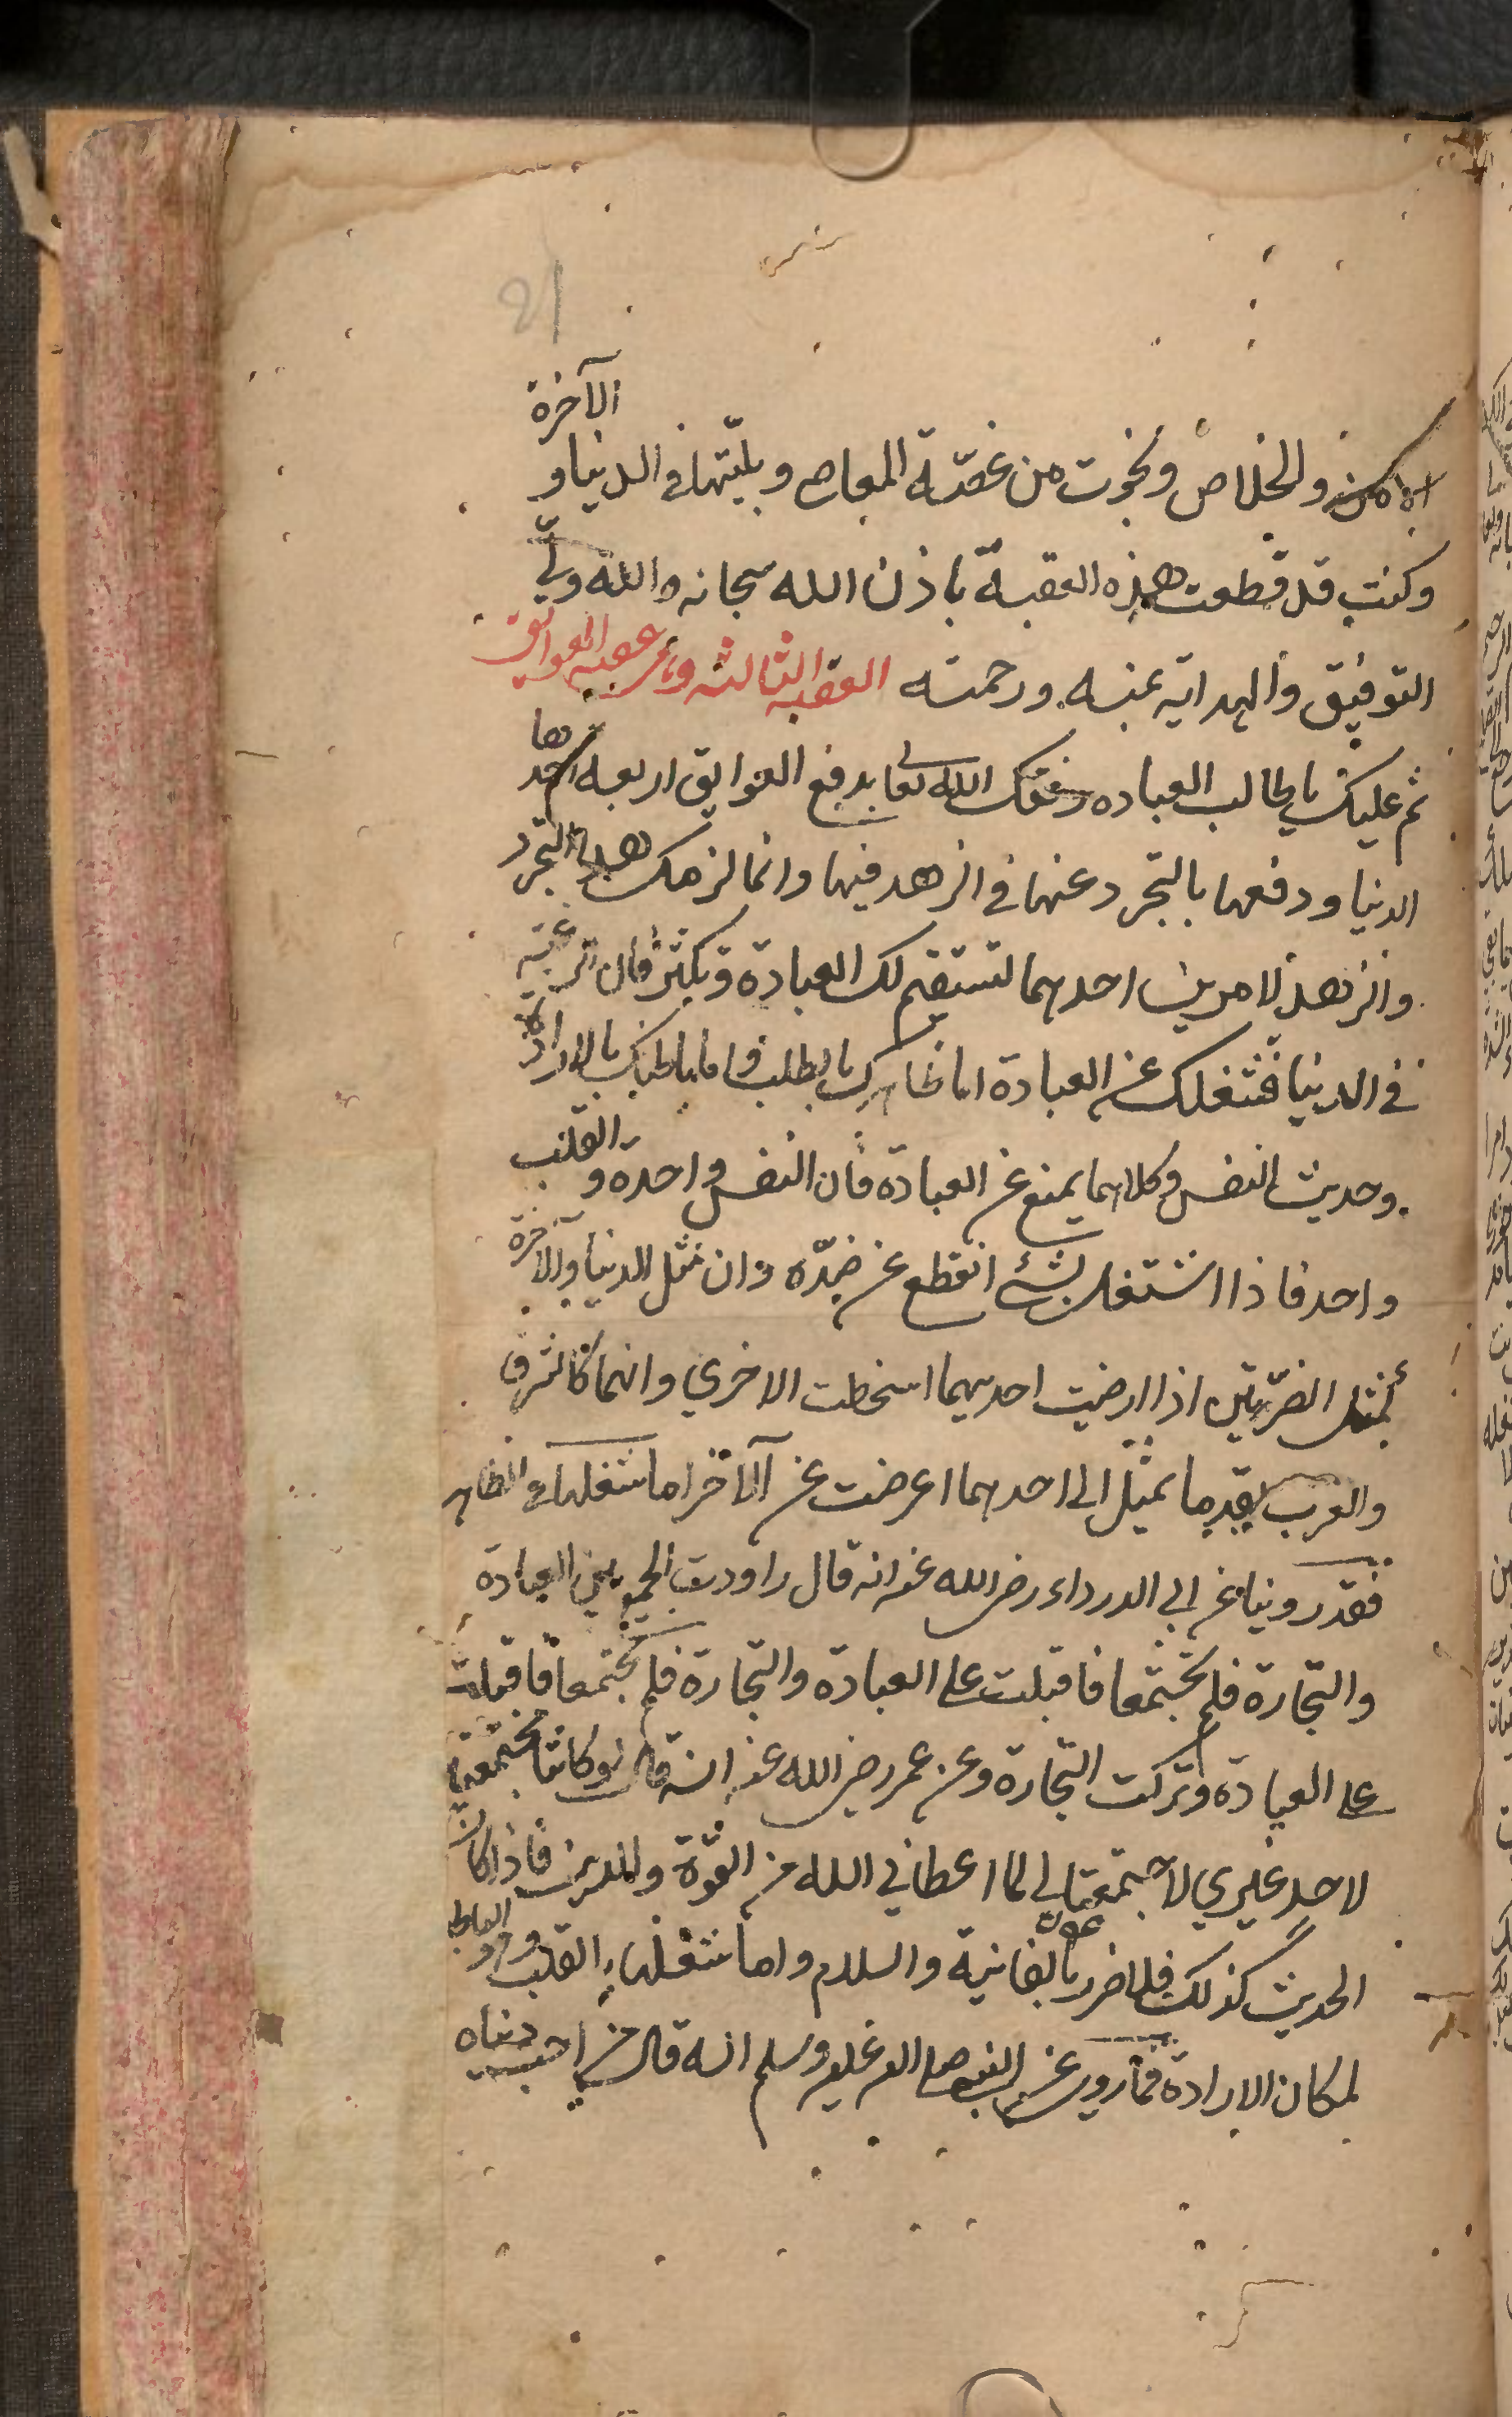 21
الامن والخلاص ونجوت من غصّة المعاصي وبليّتها في الدنيا و الآخرة
وكنت قد قطعت هذه العقبة باذن الله سبحانه والله وليّ
التوفيق والهداية بمنه ورحمته العقبه الثالثه وهي عقبه العوائق
ثم عليك يا طالب العباده وفقك الله تعا بدفع العوايق اربعه احدها
الدنيا ودفعها بالتجرد عنها في الزهد فيها وانما لزمك هذا التجرد
والزهد لامرين احدهما لتستقيم لك العبادة وتكثر فان الرغبة
في الدنيا فتشغلك عن العبادة اما ظاهرك بالطلب واما باطنك بالارادة
وحديث النفس وكلاهما يمنع عن العبادة فان النفس واحدة و القلب
واحد فاذا اشتغل بشئ انقطع عن ضدّه وان مثل الدنيا والآخرة
كمثل الضرّتين اذا ارضيت احديهما اسخطت الاخري وانهما كالشرق
والغرب بقدر ما تميل الى احدهما اعرضت عن الآخر اما شغلها في الظاهر
فقد روينا عن ابي الدرداء رضي الله عنه انه قال راودت الجمع بين العبادة
والتجارة فلم تجتمعا فاقبلت على العبادة والتجارة فلم تجتمعا فاقبلت
على العبادة وتركت التجارة وعن عمر رضي الله عنه انه قال لو كانتا مجتمعتين
لاحد غيري لاجتمعتا لي لما اعطاني الله من القوّة واللين فاذا كان
الحديث كذلك فلا ضرر بالفانية والسلام واما شغلها القلب
لمكان الارادة فما روي عن النبي صلى الله عليه وسلم انه قال من احب دنياه